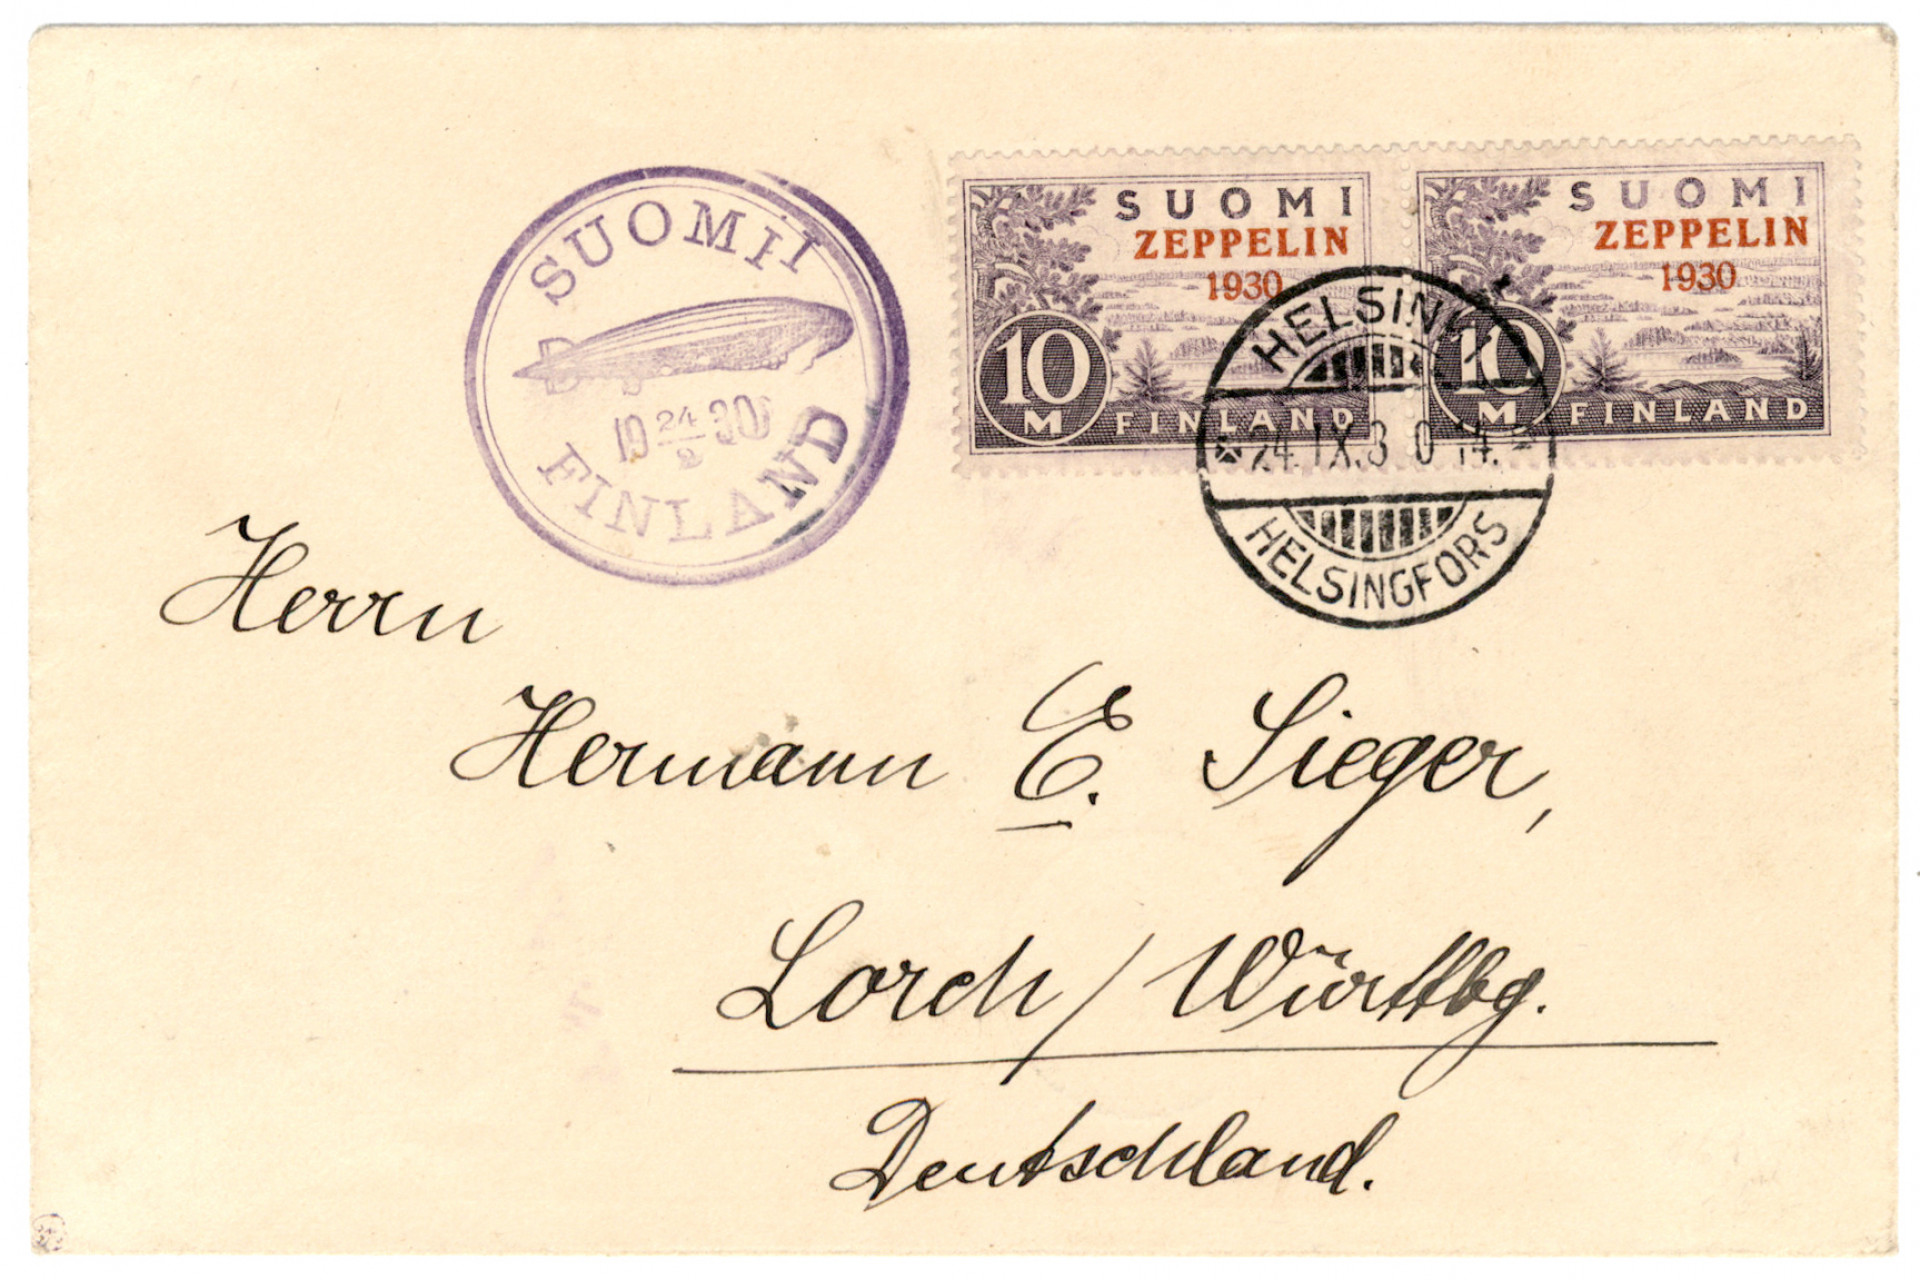 SUOMI
19 24/9 30
FINLAND
SUOMI
ZEPPELIN
1930
10
M
FINLAND
SUOMI
ZEPPELIN
1930
10
M
FINLAND
HELSINKI
24.IX.30 14.
HELSINGFORS
Herrn
Hermann E. Sieger,
Lorch/Württbg.
Deutschland.